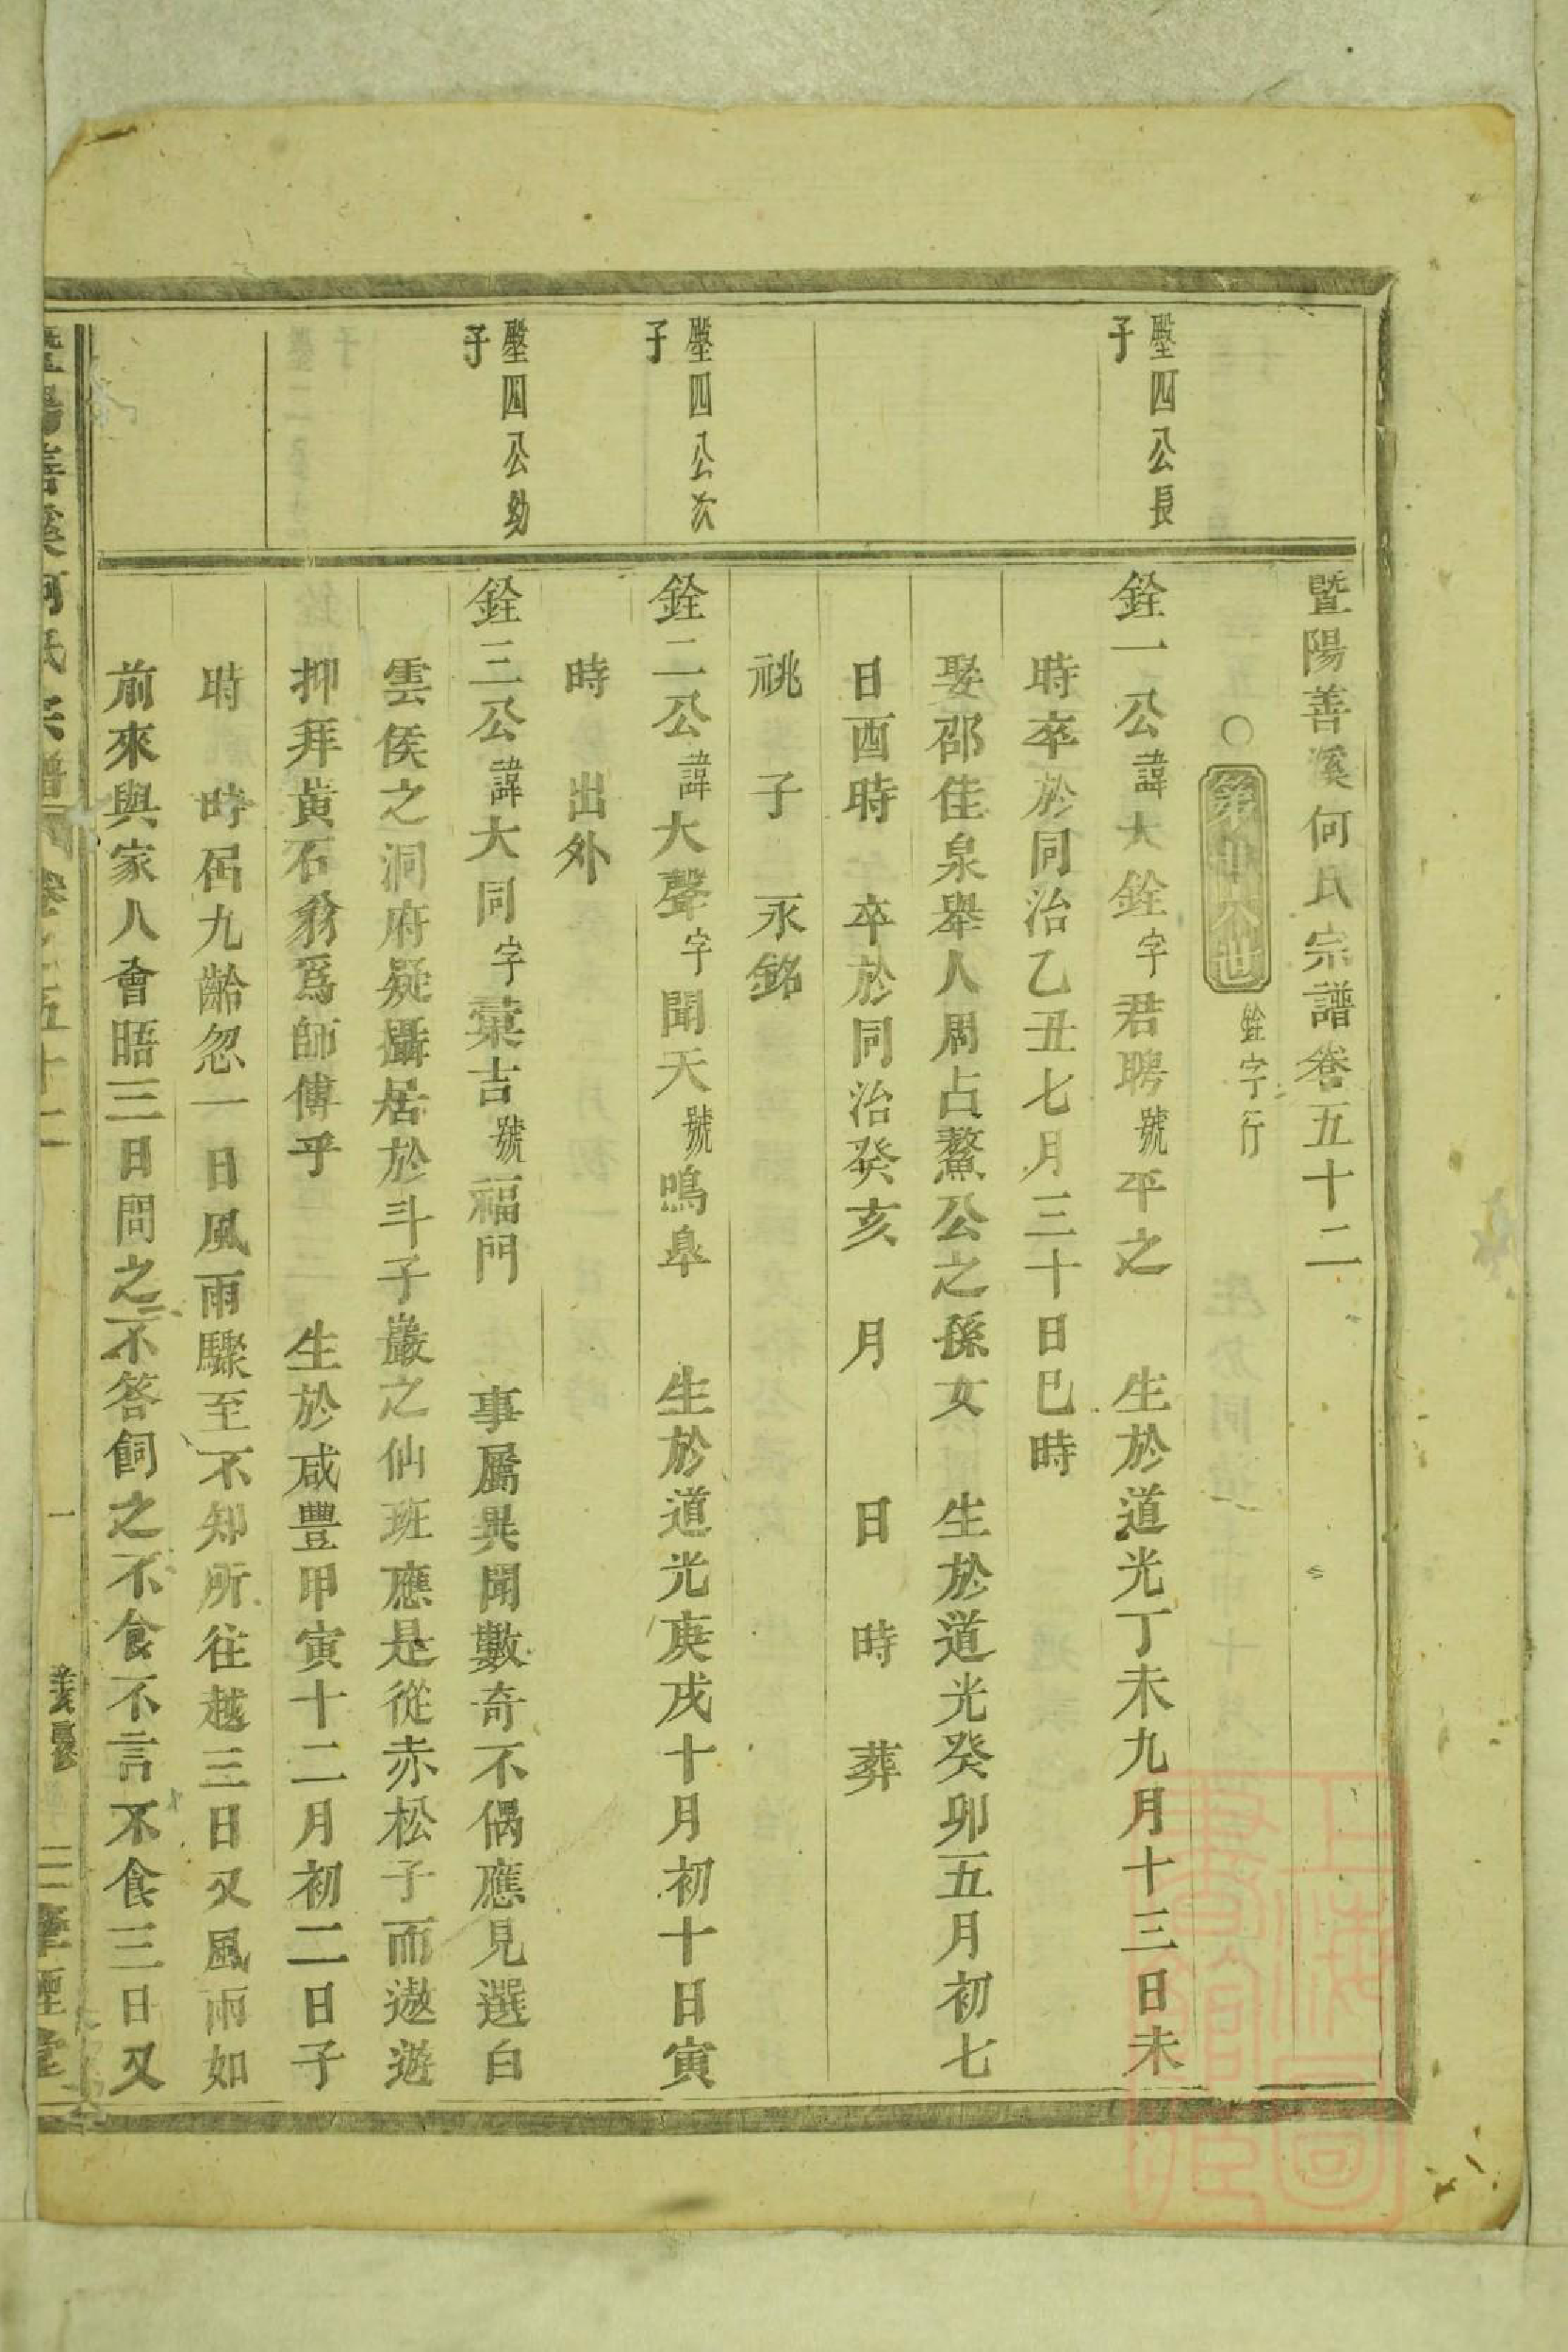 暨陽善溪何氏宗譜卷五十二
○第卅六世 銓字行
壑四公長子
銓一公諱大銓字君聘號平之 生於道光丁未九月十三日未
時卒於同治乙丑七月三十日巳時
娶邵佳泉舉人周占鰲公之孫女 生於道光癸卯五月初七
日酉時 卒於同治癸亥 月 日 時 葬
祧子 永銘
壑四公次子
銓二公諱大聲字聞天號鳴皐 生於道光庚戌十月初十日寅
時 出外
壑四公幼子
銓三公諱大同字彙吉號福門 事屬異聞數奇不偶應見選白
雲侯之洞府疑攝居於斗子巖之仙班應是從赤松子而遨遊
抑拜黃石翁爲師傅乎 生於咸豐甲寅十二月初二日子
時 時屆九齡忽一日風雨驟至不知所往越三日又風雨如
前來與家人會晤三日問之不答飼之不食不言不食三日又
暨陽善溪何氏宗譜 卷之五十二 一 義門 三畏堂